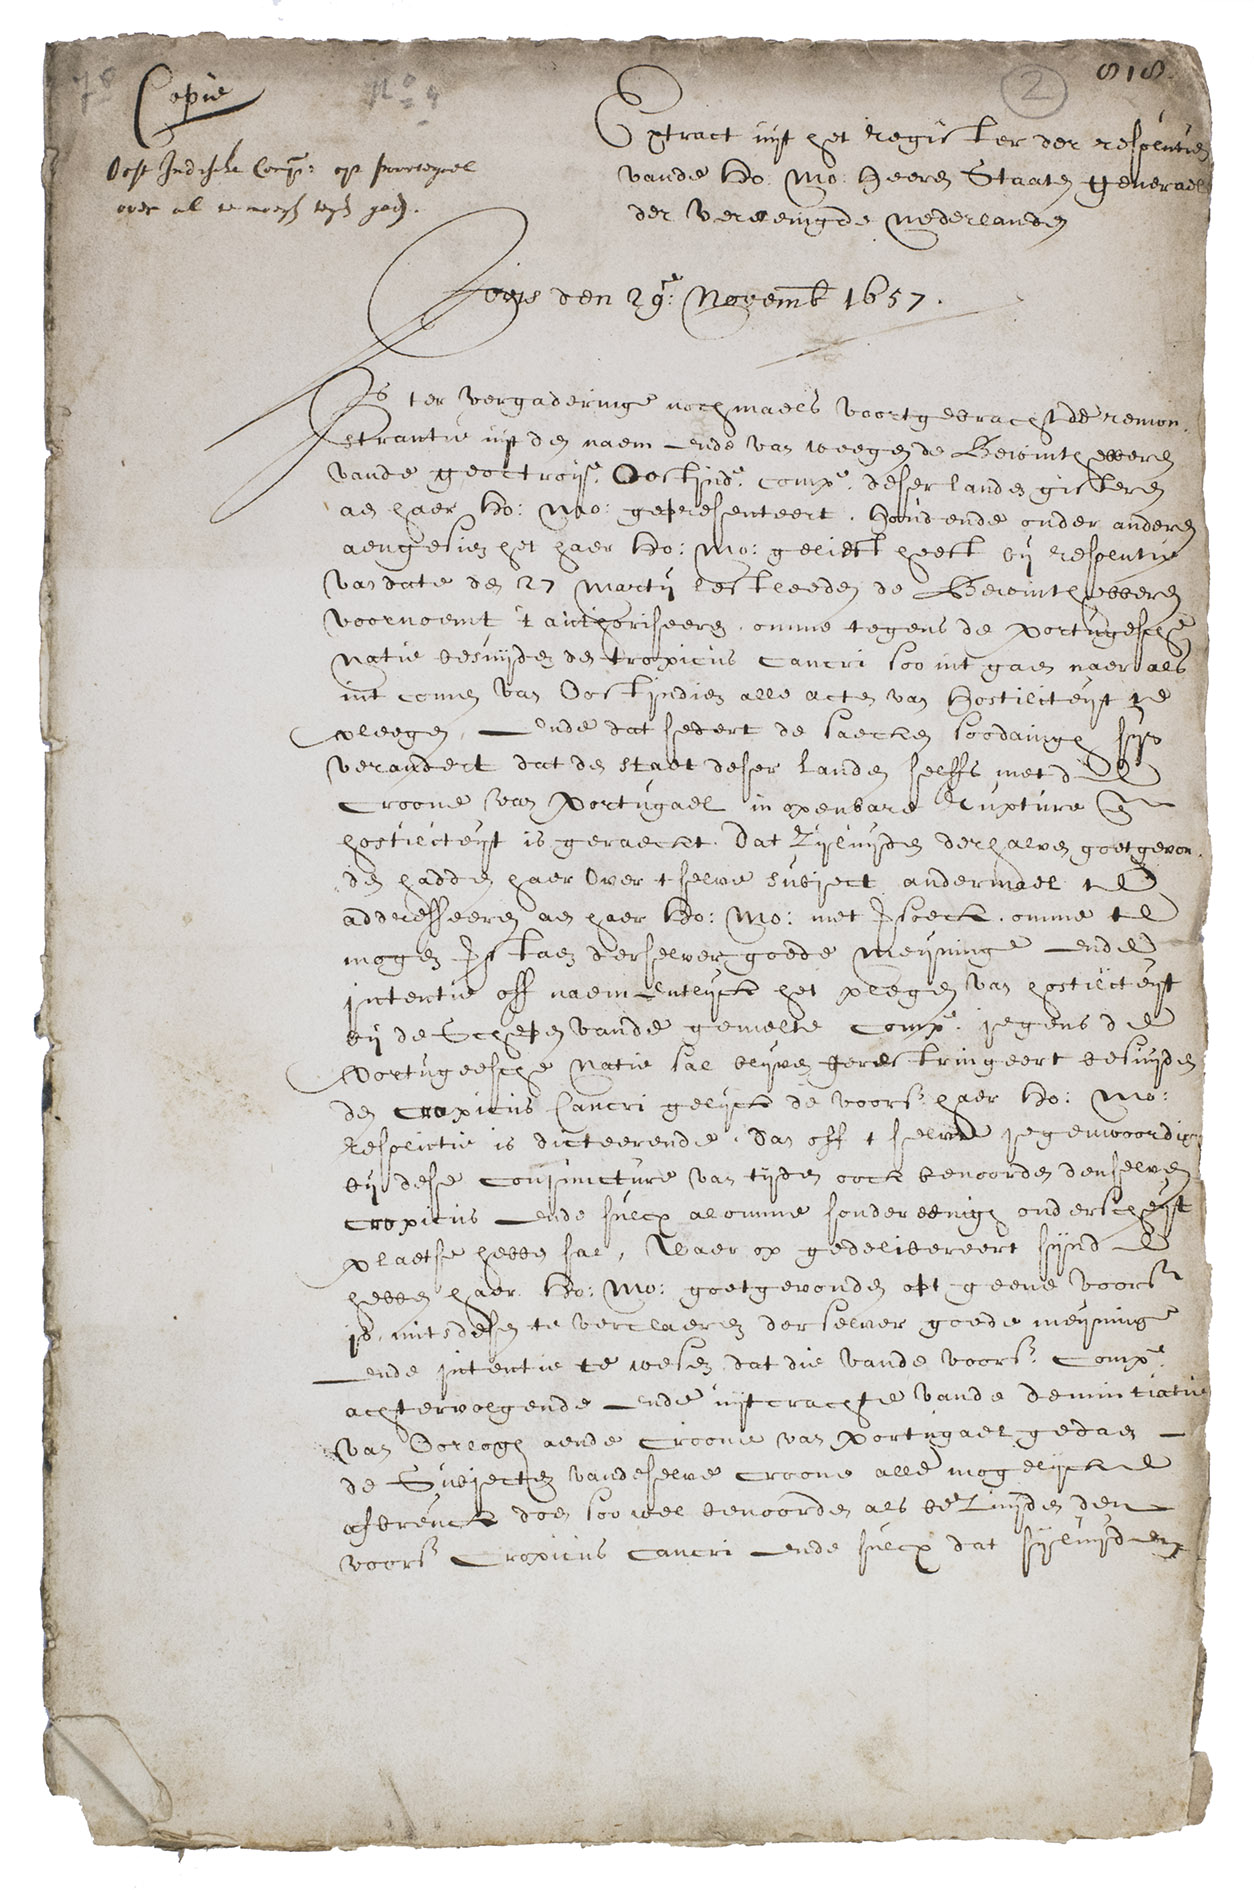 818.
2
No 4
Copie
Oost Indische Comp: op
over al te
Extract uijt het register der resolutien
vande Ho: Mo: Heeren Staaten generael
der vereenigde nederlanden
Jovis den 29e: Novemb 1657.
Is ter vergaderinge nochmaels voortgebracht de remon
strantie uijt den naem ende van weegen de Bewinthebberen
vande geoctroijde. Oostinde. Compe. deser landen gisteren
aen haer Ho: Mo: gepresenteert, houdende onder anderen
aengesien het haer Ho: Mo: gelieft heeft bij resolutie
van date den 27 Martij lestleeden de Bewinthebberen
voornoemt t'authoriseeren, omme tegens de Portugesche
Natie besuijden den tropicus Cancri soo int gaen naer als
int comen van Oostindien alle acten van Hostiliteijt te
pleegen, ende dat sedert de saecken soodanigh sijn
verandert dat den staet deser landen selffs met de
Croone van Portugael in openbare Rupture en
hostiliteijt is geraeckt. Dat zijluijden derhalven goetgevon
den hadden haer over tselve subject andermael te
addresseeren aen haer Ho: Mo: met versoeck, omme te
mogen verstaen derselver goede meijninge ende
intentie off naementlijck het plegen van hostiliteijt
bij de Schepen vande gemelte Compe. jegens de
Portugeesche Natie sal blijven gerestringeert besuijden
den tropicus Cancri gelijck de voorsr. haer Ho: Mo:
resolutie is dicteerende, dan off t selve jegenwoordig
bij dese conjuncture van tijden oock benoorden denselven
tropicus ende sulcx alomme sonder eenigh onderscheijt
plaetse hebbe sal, Waer op gedelibereert sijnde
hebben haer Ho: Mo: goetgevonden opt geene voorsr
is, mitsdesen te verclaeren derselver goede meijninge
ende intentie te wesen dat die vande voorsr. Compe.
achtervolgende ende uijtcrachte vande denuntiatie
van Oorlogh aende Croone van Portugael gedaen
de Subjecten vandeselve Croone alle mogelijcke
afbreuck doen soo wel benoorden als bezuijden den
voorsr Tropicus Cancri ende sulcx dat sijluijden